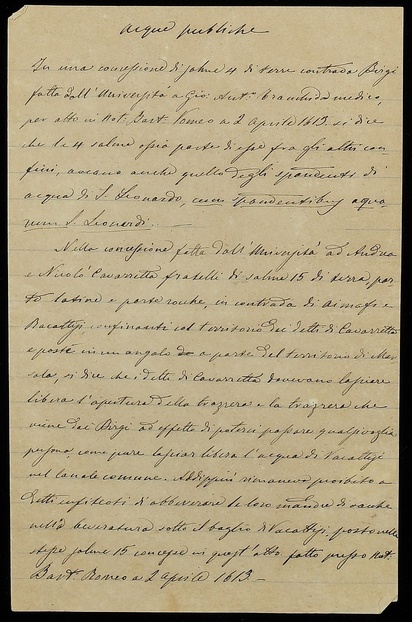 acque pubbliche
In una concessione di salme 4 di terre contrada Birgi
fatta dall'Università a Gio: Ant.° medico,
per atto in Not. Bart. Romeo a 2 aprile 1613 si dice
che le 4 salme ossia parte di esse fra gli altri con-
fini, aveano anche quello degli spandenti di
acqua di S. Leonardo, cum spandentibus aqua-
rum S. Leonardi. —
Nella concessione fatta dall'Università ad Andrea
e Nicolò Cavarretta fratelli di salme 15 di terra par-
te e parte , in contrada di e
confinanti col territorio dei detti di Cavarretta
e poste in un angolo a parte del territorio di Mar-
sala, si dice che i detti di Cavarretta dovevano lasciare
libera l'apertura della trazzera e la trazzera che
viene dai Birgi ad effetto di potersi passare qualsivoglia
persona, come pure lasciar libera l'acqua di
nel canale comune. Addippiù rimaneva proibito a
detti di abbeverare le loro mandre di
nell'a beveratura sotto il baglio di posto nelle
stesse salme 15 concesse in quest'atto fatto presso Not.
Bart. Romeo a 2 aprile 1613. —